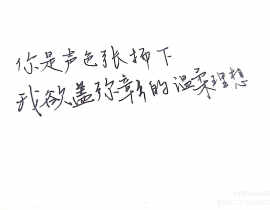 你是声色张扬下
我欲盖弥彰的温柔理想